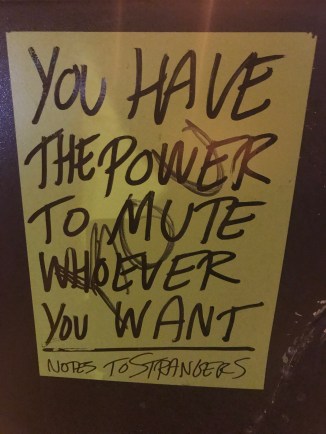 YOU HAVE
THE POWER
TO MUTE
WHOEVER
YOU WANT
NOTES TO STRANGERS